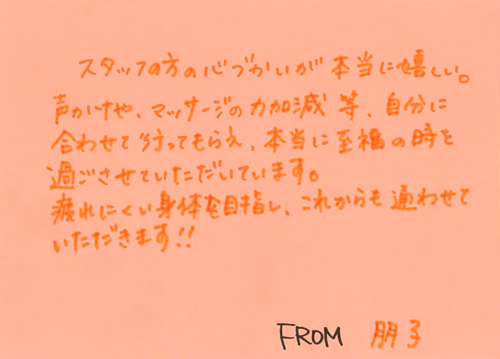 スタッフの方の心づかいが本当に嬉しい。
声かけや、マッサージの力加減等、自分に
合わせて行ってもらえ、本当に至福の時を
過ごさせていただいています。
疲れにくい身体を目指し、これからも通わせて
いただきます!!
FROM 朋子